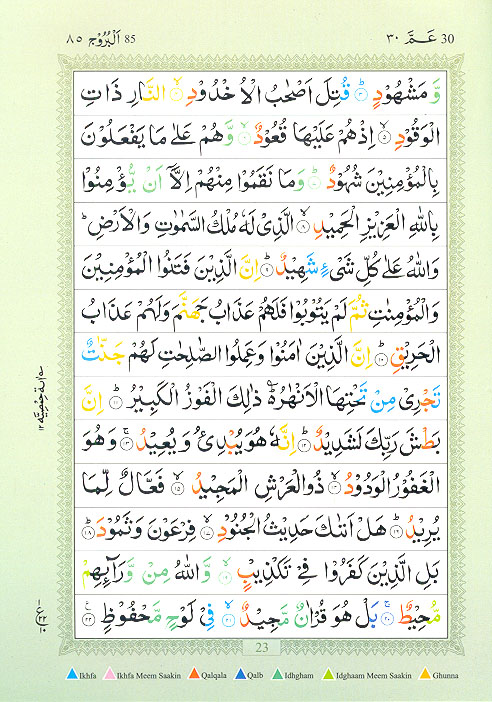 30 عَمَّ ٣٠
85 اَلْبُرُوْج ٨٥
وَّ مَشْهُوْدٍ ؕ﴿۳﴾ قُتِلَ اَصْحٰبُ الْاُخْدُوْدِ ۙ﴿۴﴾ النَّارِ ذَاتِ
الْوَقُوْدِ ۙ﴿۵﴾ اِذْ هُمْ عَلَيْهَا قُعُوْدٌ ۙ﴿۶﴾ وَّ هُمْ عَلٰى مَا يَفْعَلُوْنَ
بِالْمُؤْمِنِيْنَ شُهُوْدٌ ؕ﴿۷﴾ وَمَا نَقَمُوْا مِنْهُمْ اِلَّاۤ اَنْ يُّؤْمِنُوْا
بِاللّٰهِ الْعَزِيْزِ الْحَمِيْدِ ۙ﴿۸﴾ الَّذِىْ لَهٗ مُلْكُ السَّمٰوٰتِ وَالْاَرْضِ ؕ
وَاللّٰهُ عَلٰى كُلِّ شَىْءٍ شَهِيْدٌ ؕ﴿۹﴾ اِنَّ الَّذِيْنَ فَتَنُوا الْمُؤْمِنِيْنَ
وَالْمُؤْمِنٰتِ ثُمَّ لَمْ يَتُوْبُوْا فَلَهُمْ عَذَابُ جَهَنَّمَ وَلَهُمْ عَذَابُ
الْحَرِيْقِ ؕ﴿۱۰﴾ اِنَّ الَّذِيْنَ اٰمَنُوْا وَعَمِلُوا الصّٰلِحٰتِ لَهُمْ جَنّٰتٌ
تَجْرِىْ مِنْ تَحْتِهَا الْاَنْهٰرُ ؕ ذٰلِكَ الْفَوْزُ الْكَبِيْرُ ؕ﴿۱۱﴾ اِنَّ
بَطْشَ رَبِّكَ لَشَدِيْدٌ ؕ﴿۱۲﴾ اِنَّهٗ هُوَ يُبْدِئُ وَ يُعِيْدُ ۚ﴿۱۳﴾ وَهُوَ
الْغَفُوْرُ الْوَدُوْدُ ۙ﴿۱۴﴾ ذُو الْعَرْشِ الْمَجِيْدُ ۙ﴿۱۵﴾ فَعَّالٌ لِّمَا
يُرِيْدُ ؕ﴿۱۶﴾ هَلْ اَتٰىكَ حَدِيْثُ الْجُنُوْدِ ۙ﴿۱۷﴾ فِرْعَوْنَ وَثَمُوْدَ ؕ﴿۱۸﴾
بَلِ الَّذِيْنَ كَفَرُوْا فِىْ تَكْذِيْبٍ ۙ﴿۱۹﴾ وَّاللّٰهُ مِنْ وَّرَآئِهِمْ
مُّحِيْطٌ ۚ﴿۲۰﴾ بَلْ هُوَ قُرْاٰنٌ مَّجِيْدٌ ۙ﴿۲۱﴾ فِىْ لَوْحٍ مَّحْفُوْظٍ ﴿۲۲﴾
23
Ikhfa
Ikhfa Meem Saakin
Qalqala
Qalb
Idhgham
Idghaam Meem Saakin
Ghunna